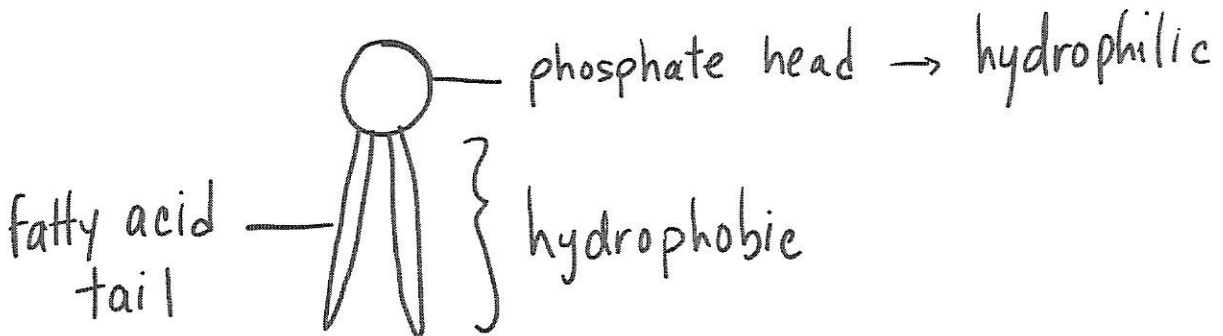 phosphate head → hydrophilic
fatty acid
tail
hydrophobic